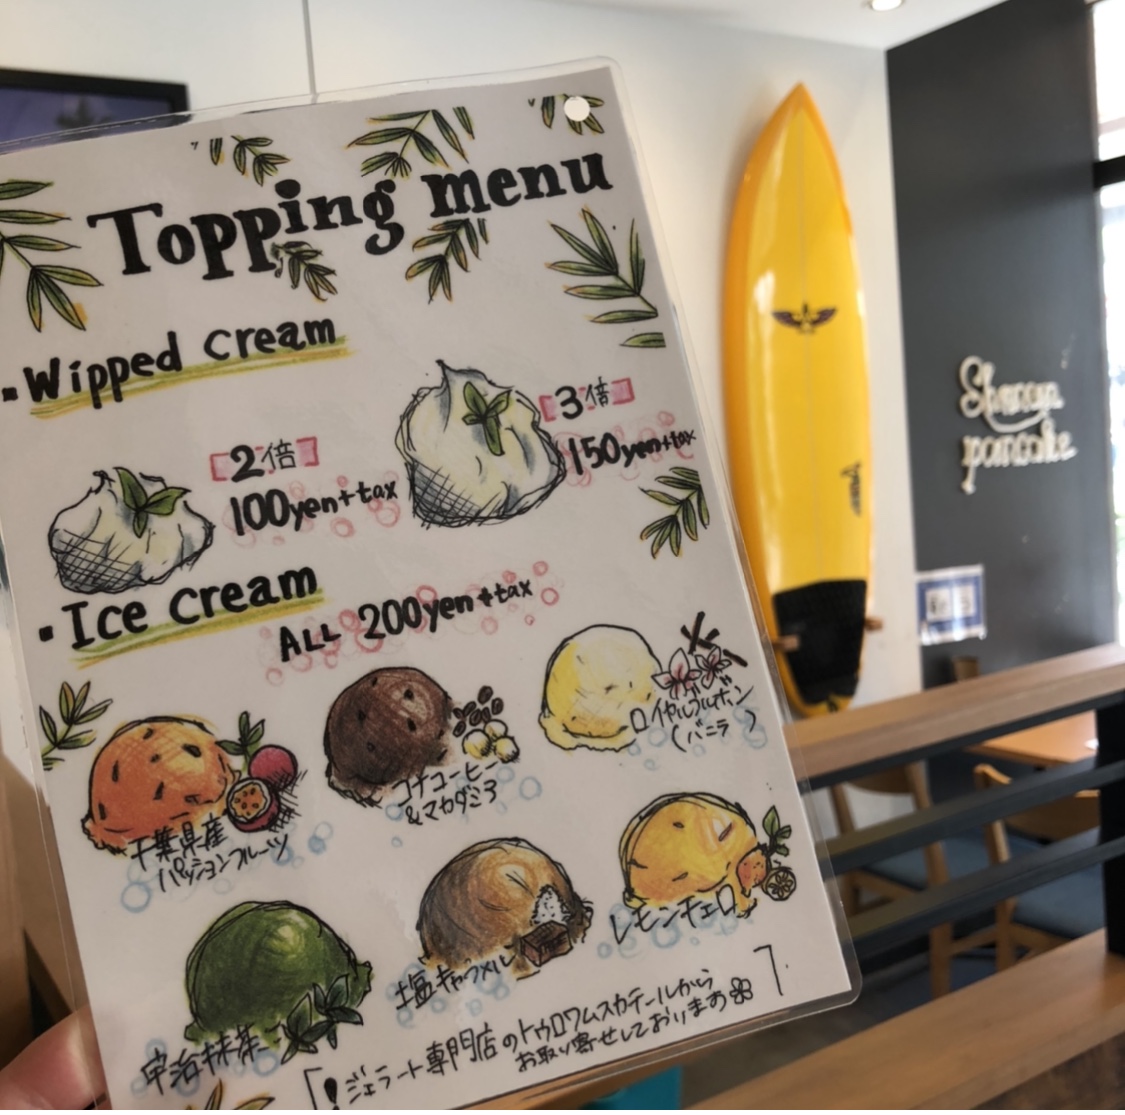 Topping menu
Wipped cream
2倍
100yen+tax
3倍
150yen+tax
Ice cream
ALL 200yen+tax
千葉県産
パッションフルーツ
コナコーヒー
&マカダミア
ロイヤルブルボン
(バニラ)
宇治抹茶
塩キャラメル
レモンチェロ
ジェラート専門店のトゥロワムスカテールから
お取り寄せしております
Shonan
pancake